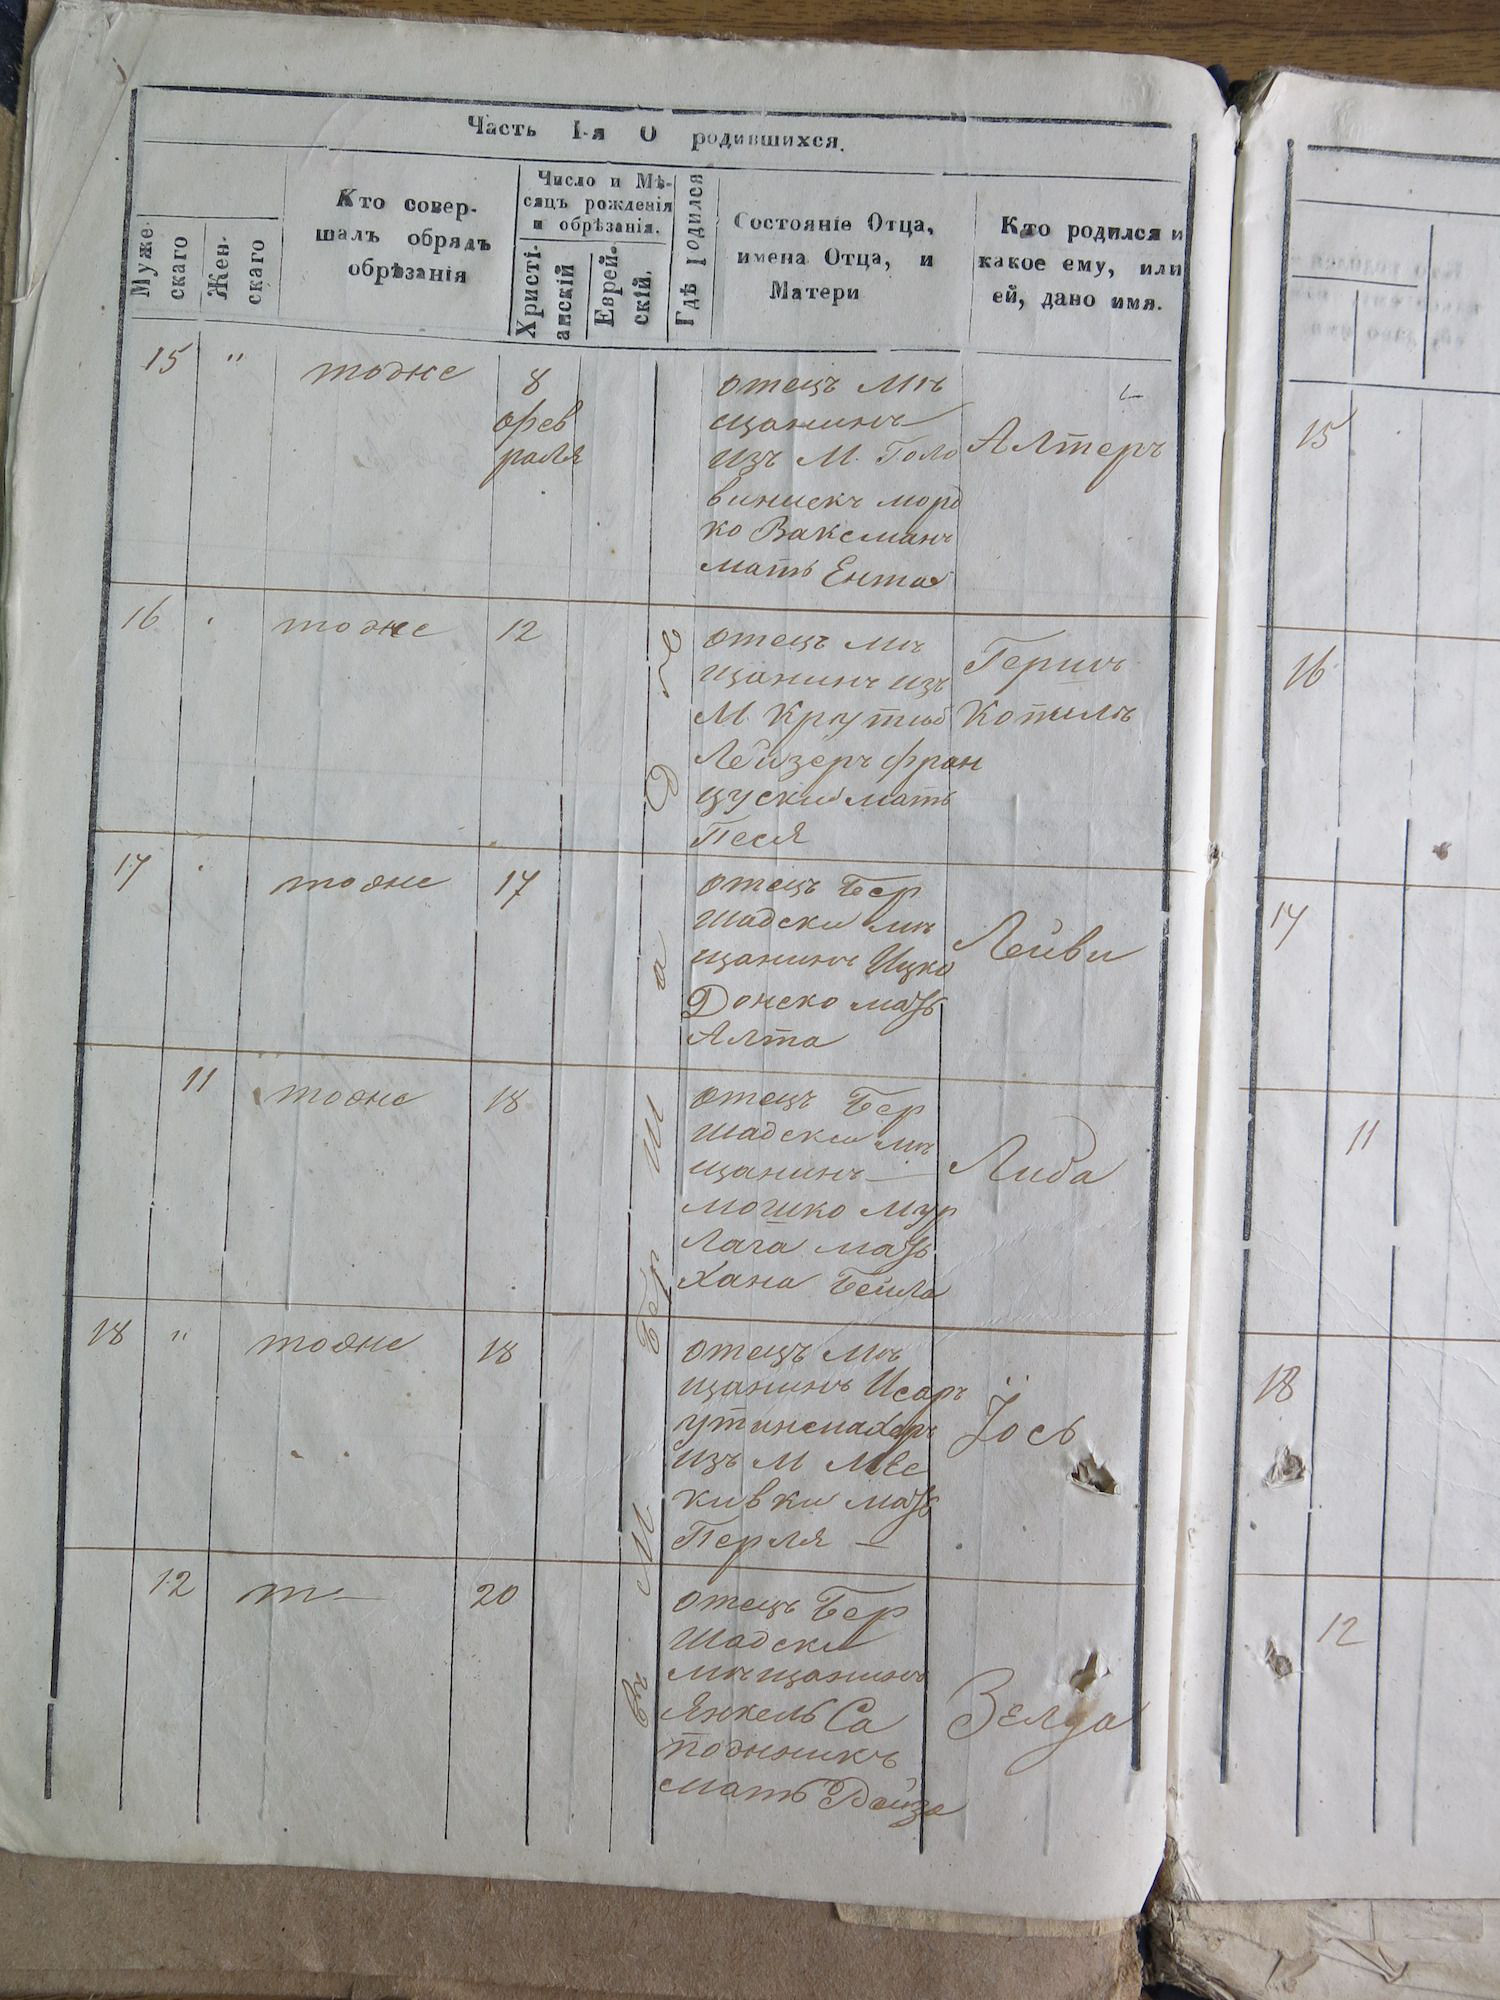 Часть I-я О родившихся.
Муже-
скаго
Жен-
скаго
Кто совер-
шалъ обрядъ
обрѣзанія
Число и Мѣ-
сяцъ рожденія
и обрѣзанія.
Христі-
анскій
Еврей-
скій.
Гдѣ родился
Состояніе Отца,
имена Отца, и
Матери
Кто родился и
какое ему, или
ей, дано имя.
15 " тоже 8
фев
раля
отецъ мѣ
щанинъ
изъ М. Голо
винискъ морд
ко Ваксманъ
мать Ента
Алтеръ
16 тоже 12
отецъ мѣ
щанинъ изъ
М. Крутыѣ
Лейзеръ фран
цускій мать
Песя
Гершъ
Копилъ
17 тоже 17
отецъ Бер
шадски мѣ
щанинъ Ицко
Донско мать
Алта
Лейви
11 тоже 18
отецъ Бер
шадски мѣ
щанинъ
мошко Мур
лага мать
Хана Бейла
Либа
18 " тоже 18
отецъ мѣ
щанинъ Исаръ
изъ М Мѣс
кивки мать
Перля
Іось
12 т— 20
отецъ Бер
шадски
мѣщанинъ
Янкель Са
пожникъ
мать Рейза
Зелда
Въ М Бершаде
15
16
17
11
18
12